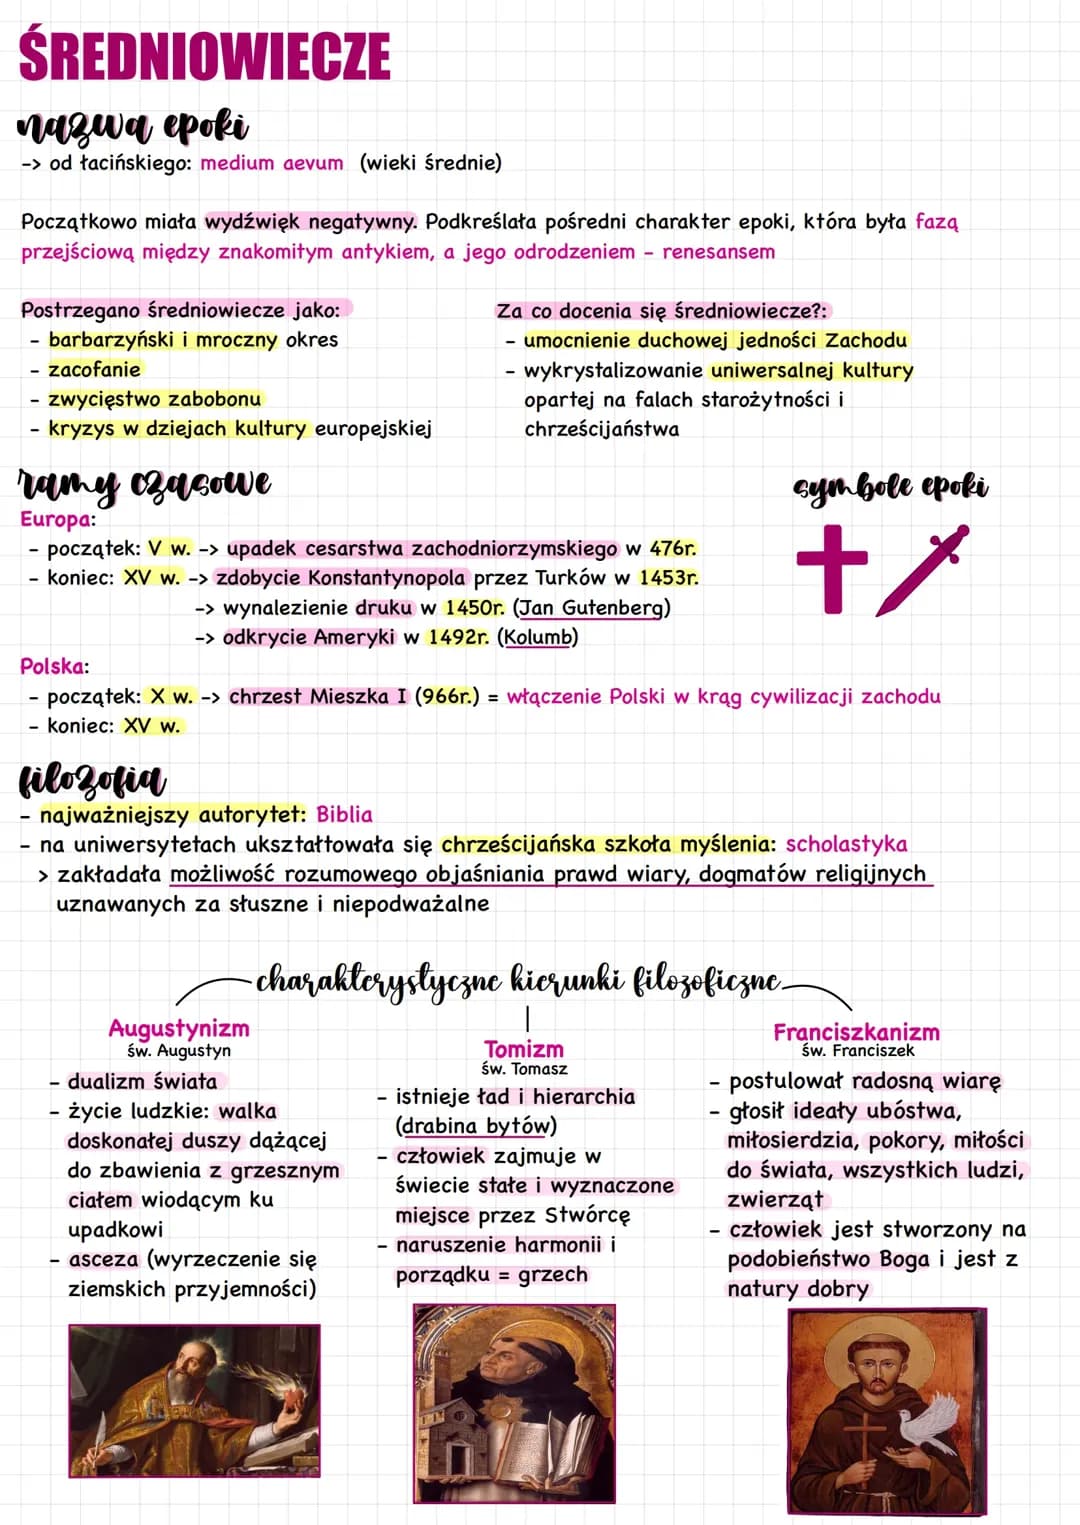 ŚREDNIOWIECZE
nazwa epoki
-> od łacińskiego: medium aevum (wieki średnie)
Początkowo miała wydźwięk negatywny. Podkreślała pośredni charakter epoki, która była fazą
przejściową między znakomitym antykiem, a jego odrodzeniem - renesansem
Postrzegano średniowiecze jako:
- barbarzyński i mroczny okres
- zacofanie
- zwycięstwo zabobonu
- kryzys w dziejach kultury europejskiej
Za co docenia się średniowiecze?:
- umocnienie duchowej jedności Zachodu
- wykrystalizowanie uniwersalnej kultury
opartej na falach starożytności i
chrześcijaństwa
ramy czasowe
Europa:
- początek: V w. -> upadek cesarstwa zachodniorzymskiego w 476r.
- koniec: XV w. -> zdobycie Konstantynopola przez Turków w 1453r.
-> wynalezienie druku w 1450r. (Jan Gutenberg)
-> odkrycie Ameryki w 1492r. (Kolumb)
symbole epoki
Polska:
- początek: X w. -> chrzest Mieszka I (966r.) = włączenie Polski w krąg cywilizacji zachodu
- koniec: XV w.
filozofia
- najważniejszy autorytet: Biblia
- na uniwersytetach ukształtowała się chrześcijańska szkoła myślenia: scholastyka
> zakładała możliwość rozumowego objaśniania prawd wiary, dogmatów religijnych
uznawanych za słuszne i niepodważalne
charakterystyczne kierunki filozoficzne
Augustynizm
św. Augustyn
- dualizm świata
- życie ludzkie: walka
doskonałej duszy dążącej
do zbawienia z grzesznym
ciałem wiodącym ku
upadkowi
- asceza (wyrzeczenie się
ziemskich przyjemności)
Tomizm
św. Tomasz
- istnieje ład i hierarchia
(drabina bytów)
- człowiek zajmuje w
świecie stałe i wyznaczone
miejsce przez Stwórcę
- naruszenie harmonii i
porządku = grzech
Franciszkanizm
św. Franciszek
- postulował radosną wiarę
- głosił ideały ubóstwa,
miłosierdzia, pokory, miłości
do świata, wszystkich ludzi,
zwierząt
- człowiek jest stworzony na
podobieństwo Boga i jest z
natury dobry